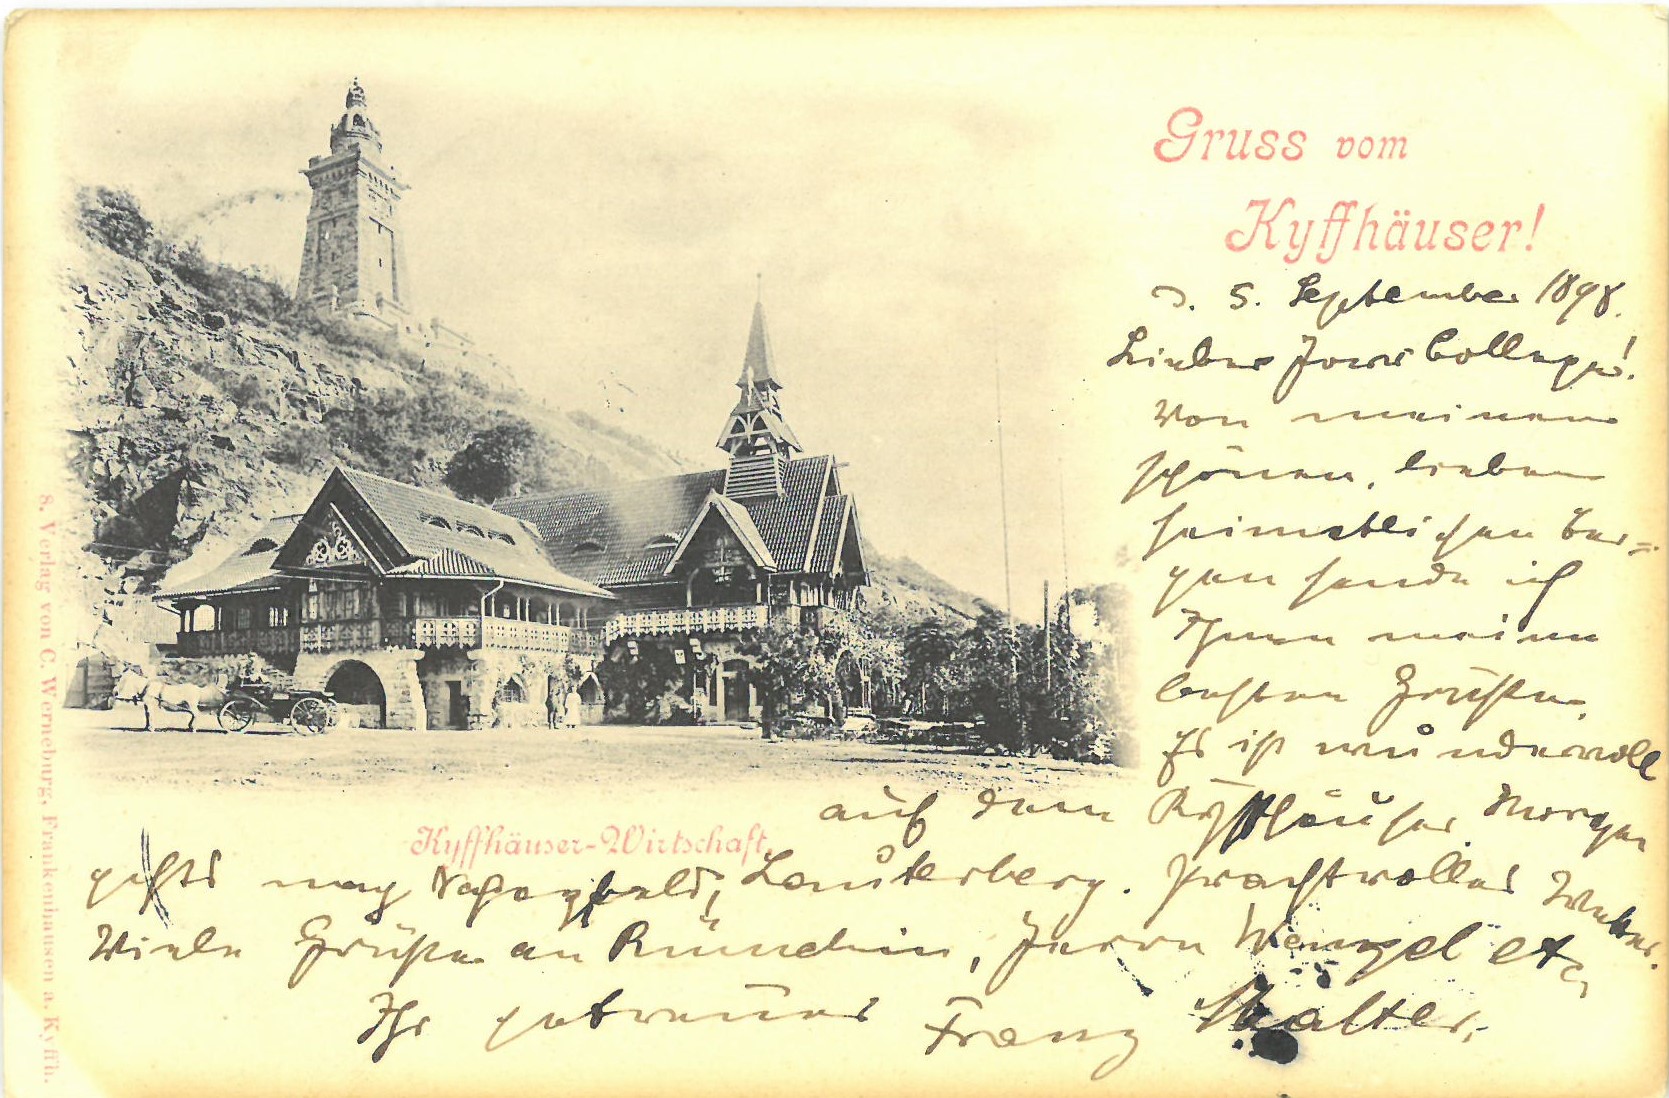 Gruss vom
Kyffhäuser!
d. 5. September 1898.
Lieber Herr College!
Von meinen
schönen, lieben
heimatlichen Ber-
gen sende ich
Ihnen meine
besten Grüße.
Es ist wundervoll
auf dem Kyffhäuser. Morgen
gehts nach Lauterberg. Prachtvolles Wetter.
Viele Grüße an Herrn Wenzel etc.
Ihr getreuer Franz Walter.
Kyffhäuser-Wirtschaft.
8. Verlag von C. Werneburg, Frankenhausen a. Kyffh.